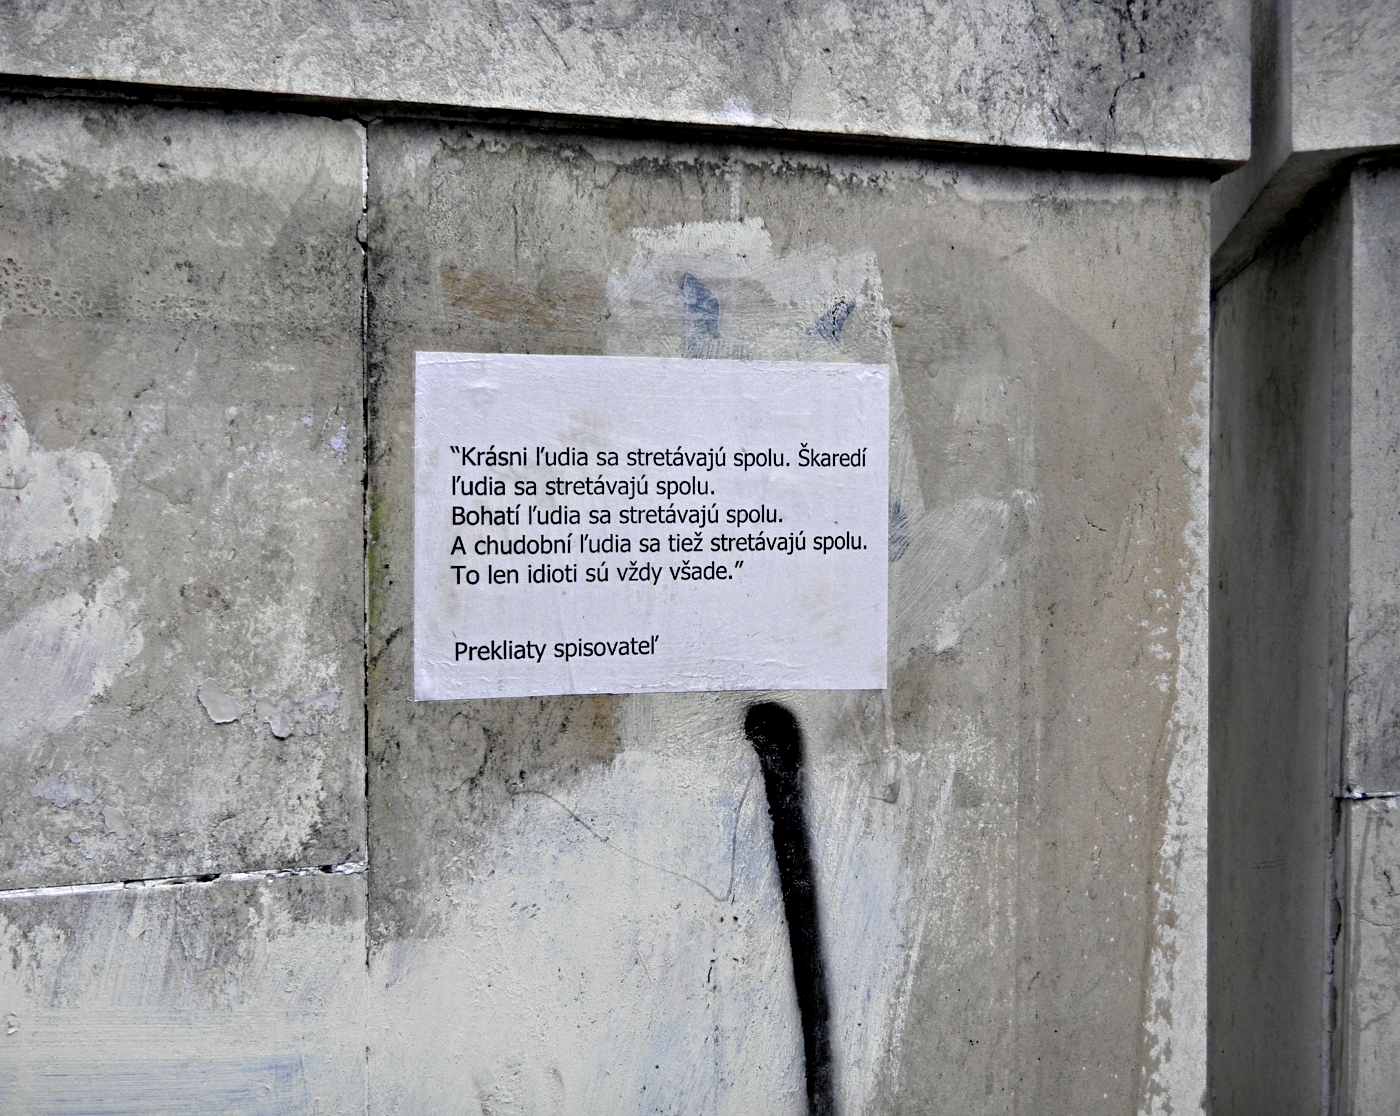 “Krásni ľudia sa stretávajú spolu. Škaredí
ľudia sa stretávajú spolu.
Bohatí ľudia sa stretávajú spolu.
A chudobní ľudia sa tiež stretávajú spolu.
To len idioti sú vždy všade.”
Prekliaty spisovateľ